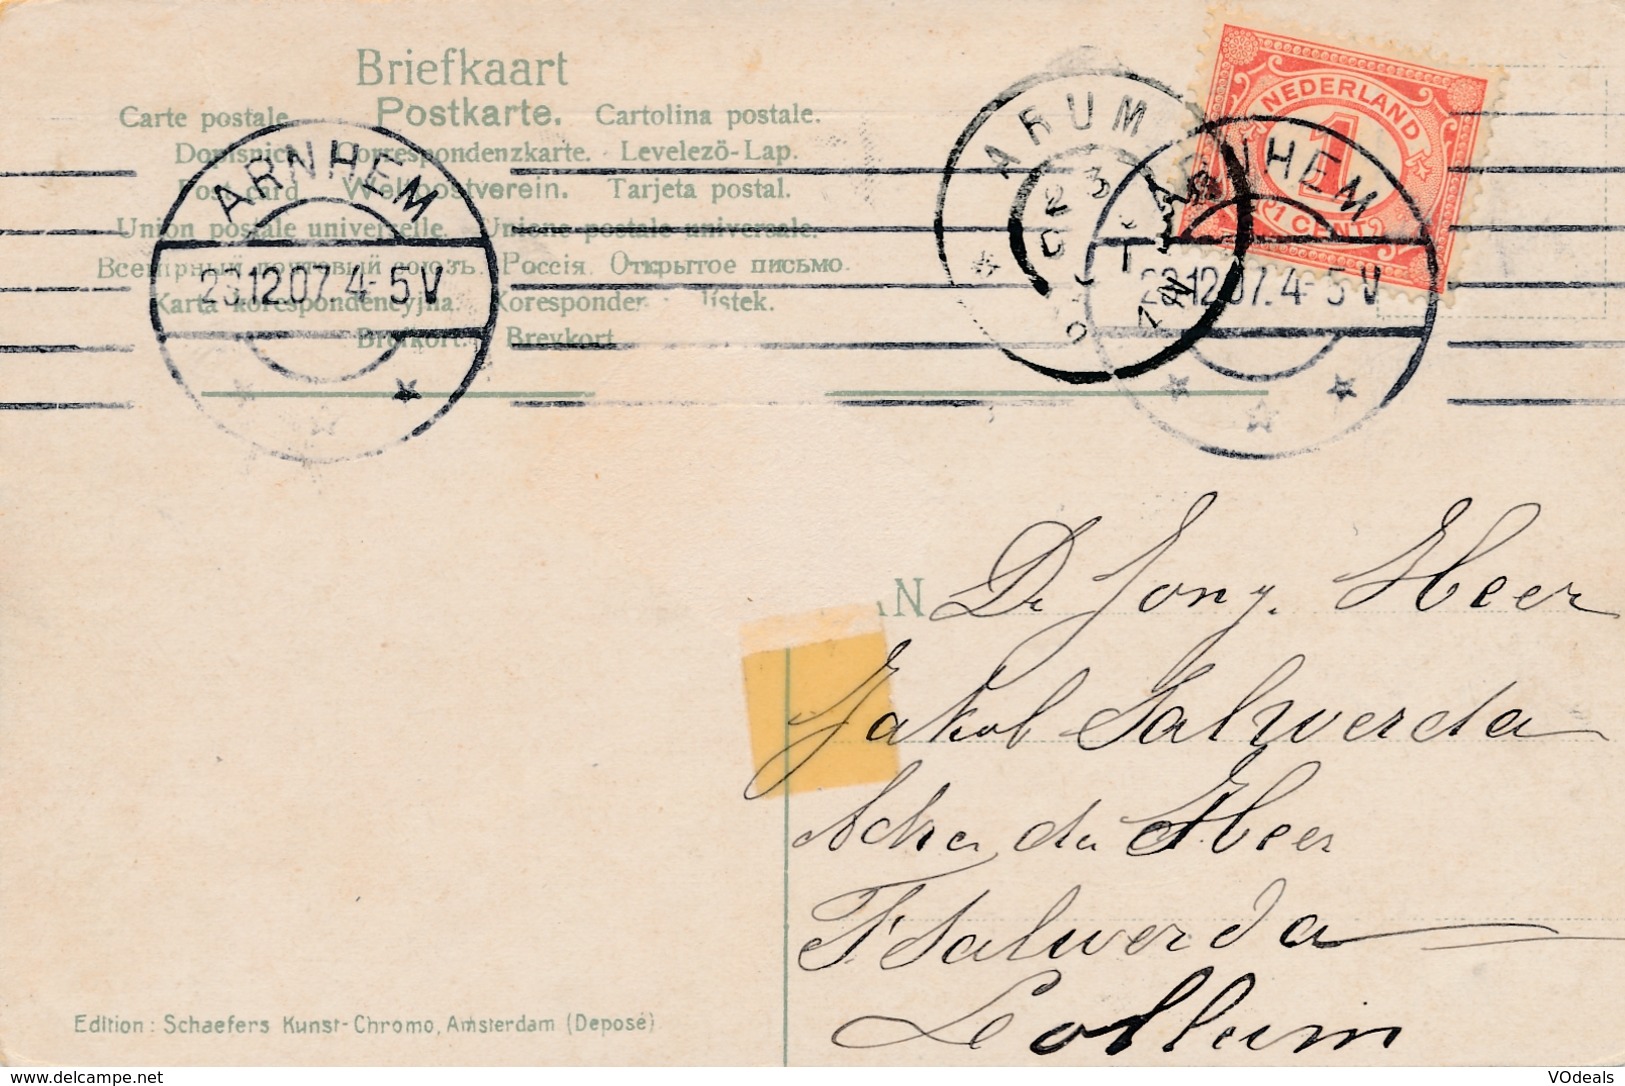 Briefkaart
Carte postale. Postkarte. Cartolina postale.
Dopisnice. Correspondenzkarte. Levelezö-Lap.
Post card. Weltpostverein. Tarjeta postal.
Union postale universelle. Unione postale universale.
Всемірный почтовый союзъ. Россія. Открытое письмо.
Karta korespondencyjna. Korespondenční lístek.
Brefkort. Brevkort.
ARNHEM
23.12.07. 4-5V
ARUM
23
ARNHEM
23.12.07. 4-5V
NEDERLAND
1
1 CENT
AN De Jong. Heer
Jakob Salwerda
de Heer
F Salwerda
Lollum
Edition: Schaefers Kunst-Chromo, Amsterdam (Deposé)
www.delcampe.net
VOdeals